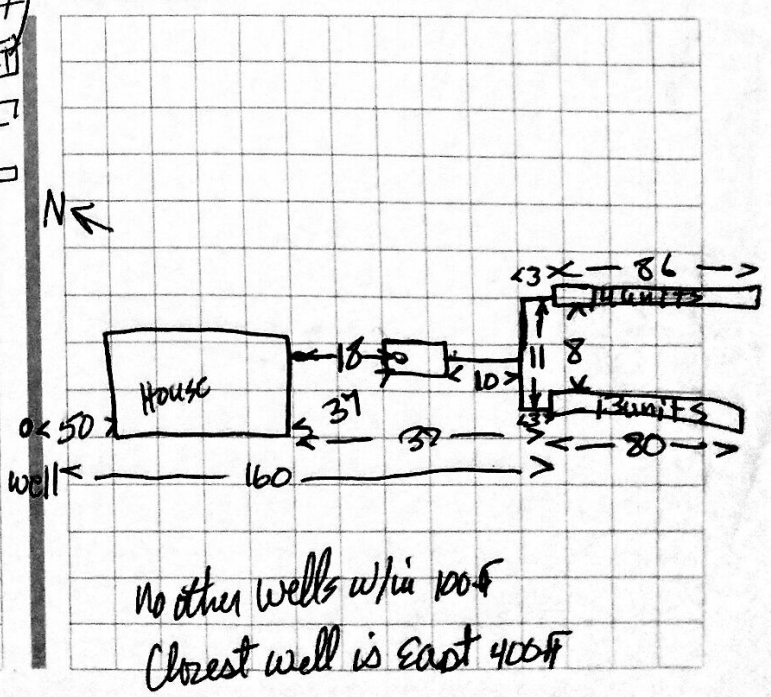 N
<3>< — 86 —>
14 units
House
18
11
8
10
37
o< 50 >
<— 37 —>
<3>
13 units
<— 80 —>
well <— 160 —>
no other wells w/in 100 ft
Closest well is East 400 ft